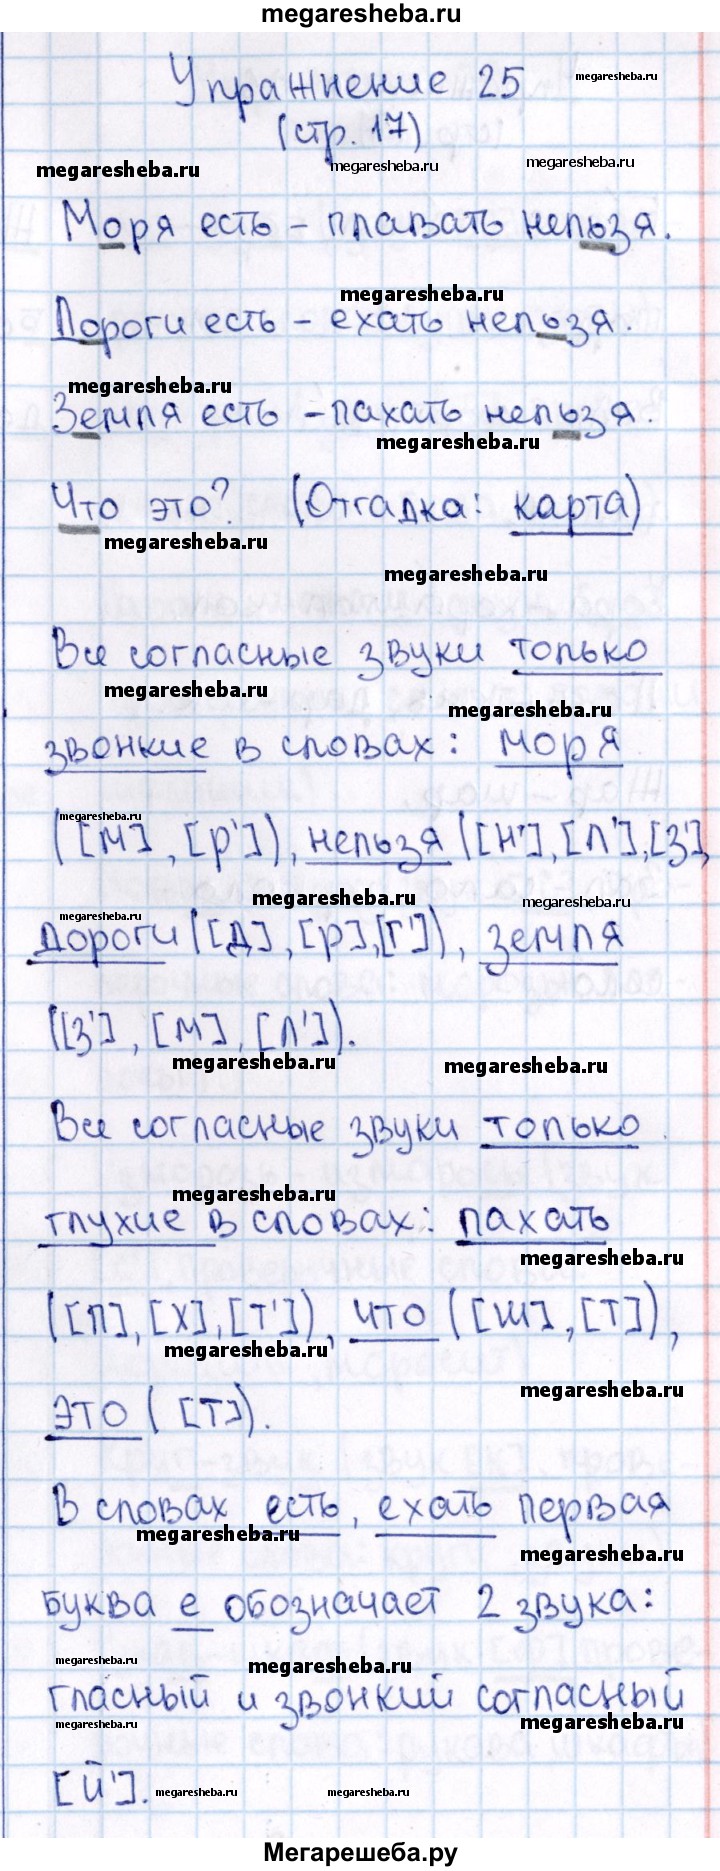 megaresheba.ru
Упражнение 25 megaresheba.ru
(стр. 17)
megaresheba.ru megaresheba.ru megaresheba.ru
Моря есть – плавать нельзя.
megaresheba.ru
Дороги есть – ехать нельзя.
megaresheba.ru
Земля есть – пахать нельзя.
megaresheba.ru
Что это? (Отгадка: карта)
megaresheba.ru
megaresheba.ru
Все согласные звуки только
megaresheba.ru
megaresheba.ru
звонкие в словах: моря
megaresheba.ru
([м], [р']), нельзя ([н'], [л'], [з'],
megaresheba.ru megaresheba.ru
megaresheba.ru
дороги ([д], [р], [г']), земля
([з'], [м], [л']).
megaresheba.ru megaresheba.ru
Все согласные звуки только
megaresheba.ru
глухие в словах: пахать
megaresheba.ru
([п], [х], [т']), что ([ш], [т]),
megaresheba.ru
megaresheba.ru
это ([т]).
В словах есть, ехать первая
megaresheba.ru
megaresheba.ru
буква е обозначает 2 звука:
megaresheba.ru megaresheba.ru
гласный и звонкий согласный
megaresheba.ru megaresheba.ru
[й']. megaresheba.ru megaresheba.ru
Мегарешеба.ру